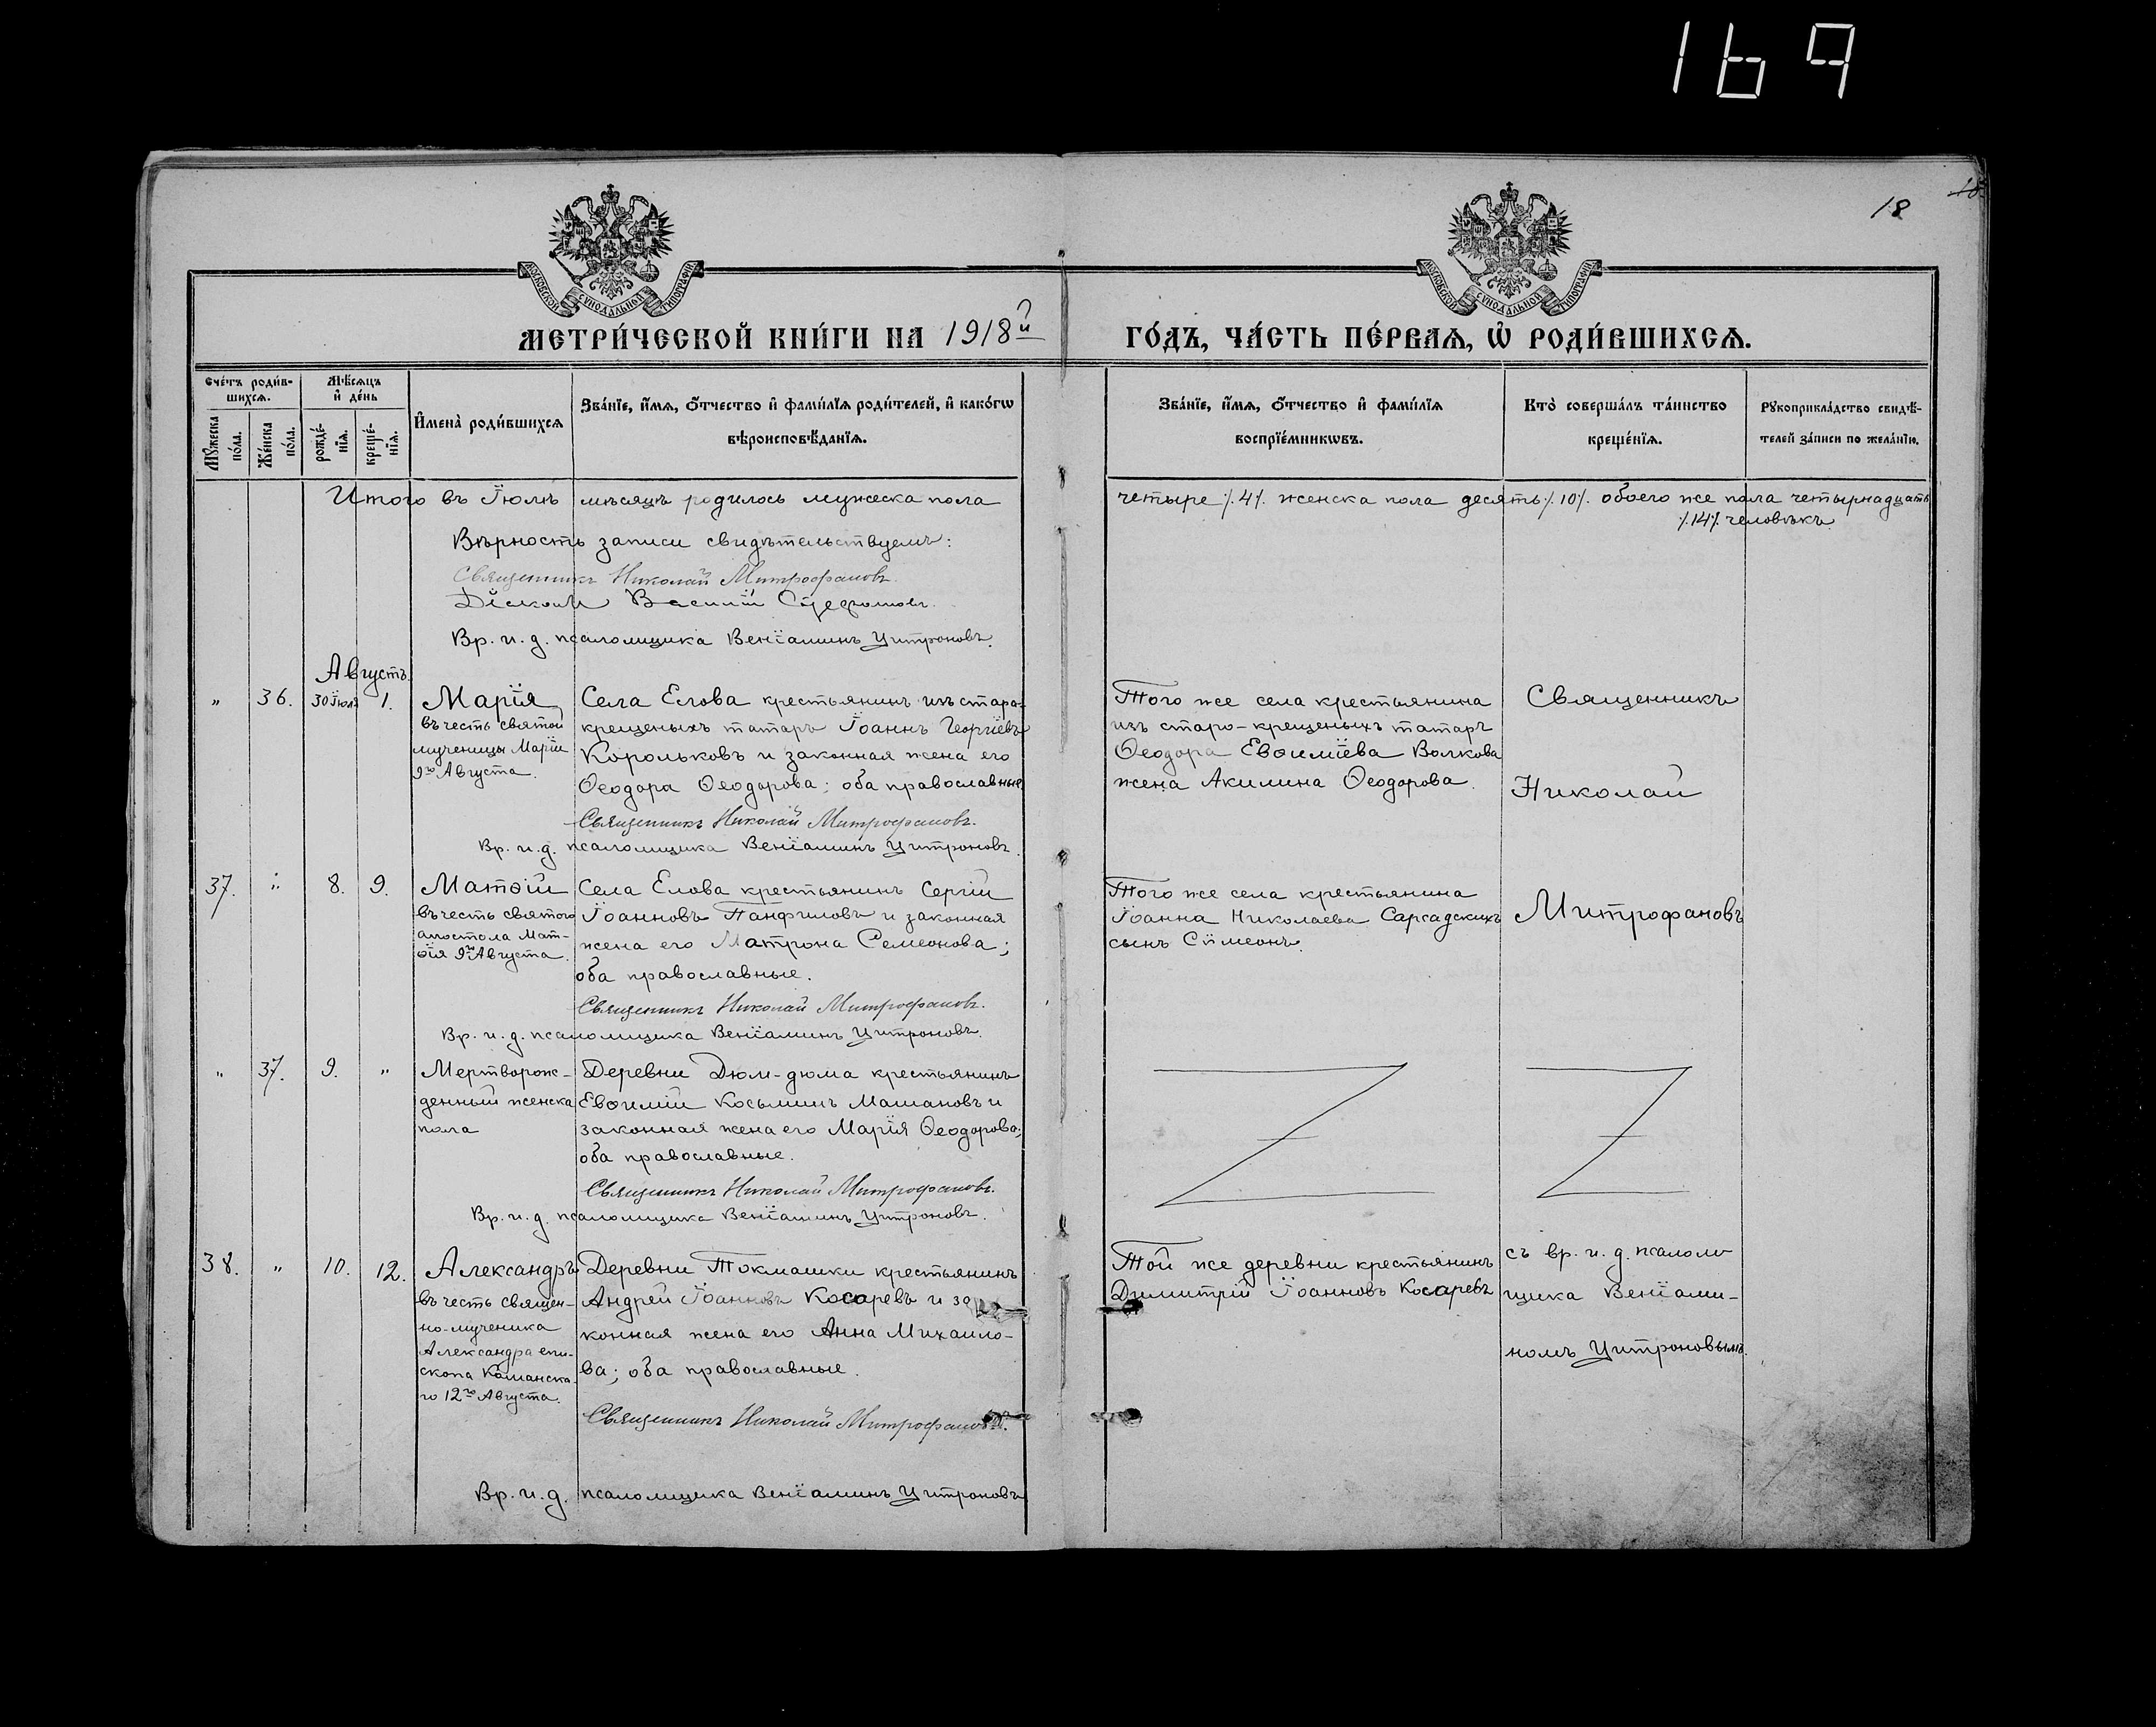 169
18
18
МОСКОВСКОЙ СѴНОДАЛЬНОЙ ТИПОГРАФІИ.
МОСКОВСКОЙ СѴНОДАЛЬНОЙ ТИПОГРАФІИ.
МЕТРИ́ЧЕСКОЙ КНИ́ГИ НА 1918й ГО́ДЪ, ЧА́СТЬ ПЕ́РВАѦ, Ѡ҆ РОДИ́ВШИХСѦ.
Сче́тъ роди́в-
шихсѧ.
Мꙋ́жеска по́ла.
Же́нска по́ла.
Мѣ́сѧцъ
и҆ де́нь
рожде́-
нїѧ.
креще́-
нїѧ.
И҆мена̀ роди́вшихсѧ
Зва́нїе, и҆́мѧ, ѻ҆́тчество и҆ фами́лїѧ роди́телей, и҆ како́гѡ
вѣроисповѣ́данїѧ.
Зва́нїе, и҆́мѧ, ѻ҆́тчество и҆ фами́лїѧ
воспрїе́мникѡвъ.
Кто̀ соверша́лъ та́инство
креще́нїѧ.
Рꙋкоприкла́дство свидѣ́-
телей за́писи по жела́нїю.
Итого въ Іюлѣ мѣсяцѣ родилось мужеска пола четыре ٪4٪ женска пола десять ٪10٪ обоего же пола четырнадцать
٪14٪ человѣкъ.
Вѣрность записи свидѣтельствуемъ:
Священникъ Николай Митрофановъ.
Діаконъ Василій
Вр. и. д. псаломщика Веніаминъ Цитроновъ.
Августъ.
" 36. 30 Іюля 1. Марія
въ честь святой
мученицы Маріи
9го Августа.
Села Елова крестьянинъ изъ старо-
крещеныхъ татаръ Іоаннъ Георгіевъ
Корольковъ и законная жена его
Ѳеодора Ѳеодорова; оба православные
Священникъ Николай Митрофановъ.
Вр. и. д. псаломщика Веніаминъ Цитроновъ.
Того же села крестьянина
изъ старо-крещеныхъ татаръ
Ѳеодора Евѳиміева Волкова
жена Акилина Ѳеодорова.
Священникъ
Николай
37. " 8. 9. Матѳій
въ честь святого
апостола Мат-
ѳія 9го Августа.
Села Елова крестьянинъ Сергій
Іоанновъ Панфиловъ и законная
жена его Матрона Семеонова;
оба православные.
Священникъ Николай Митрофановъ.
Вр. и. д. псаломщика Веніаминъ Цитроновъ.
Того же села крестьянина
Іоанна Николаева Сарсадскихъ
сынъ Симеонъ.
Митрофановъ
" 37. 9. " Мертворож-
денный женска
пола
Деревни Дюм-дюма крестьянинъ
Евѳимій Косьминъ Машановъ и
законная жена его Марія Ѳеодорова;
оба православные.
Священникъ Николай Митрофановъ.
Вр. и. д. псаломщика Веніаминъ Цитроновъ.
38. " 10. 12. Александръ
въ честь священ-
но-мученика
Александра епи-
скопа Команска-
го 12го Августа.
Деревни Токмашки крестьянинъ
Андрей Іоанновъ Косаревъ и за-
конная жена его Анна Михаило-
ва; оба православные.
Священникъ Николай Митрофановъ.
Вр. и. д. псаломщика Веніаминъ Цитроновъ
Той же деревни крестьянинъ
Димитрій Іоанновъ Косаревъ
съ вр. и. д. псалом-
щика Веніами-
номъ Цитроновымъ.